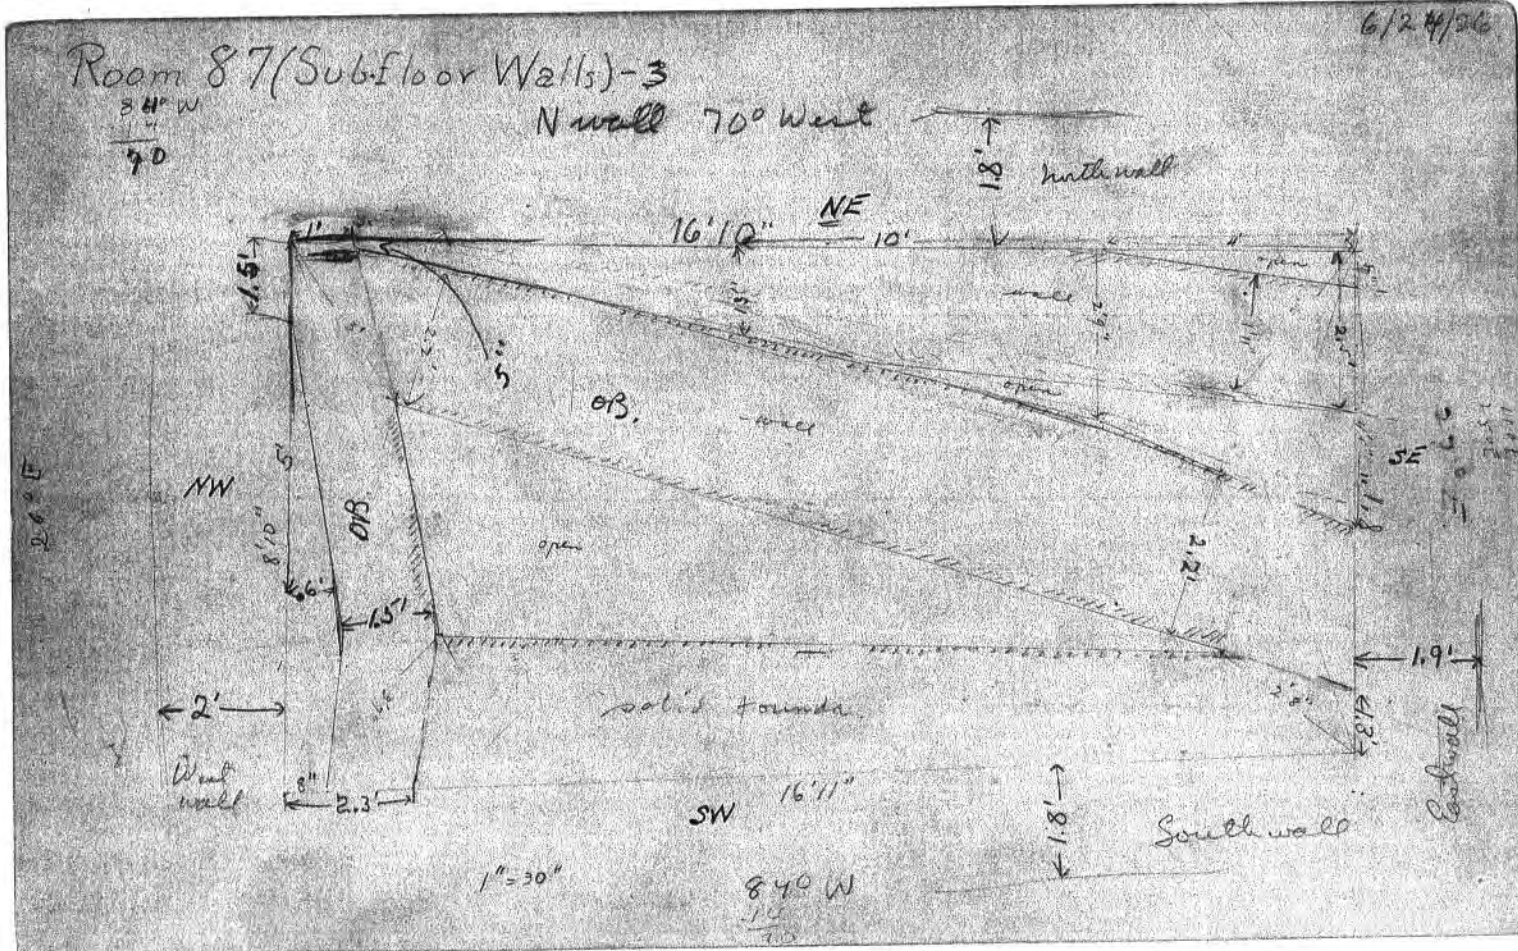 6/24/26
Room 87 (Subfloor Walls)-3
84° W
70
N wall 70° West
1.8'
North wall
NE
1'
16'10"
10'
4'
1.5'
open
5"
wall
2'9"
1'1"
2.2'
5"
OB.
open
wall
SE
26° E
NW
5'
8'10"
OB
open
2.2'
.6'
1.5'
1.9'
2'
solid founda.
4.3'
West
wall
8"
2.3'
16'11"
SW
1.8'
South wall
East wall
1"=30"
84° W
14
70